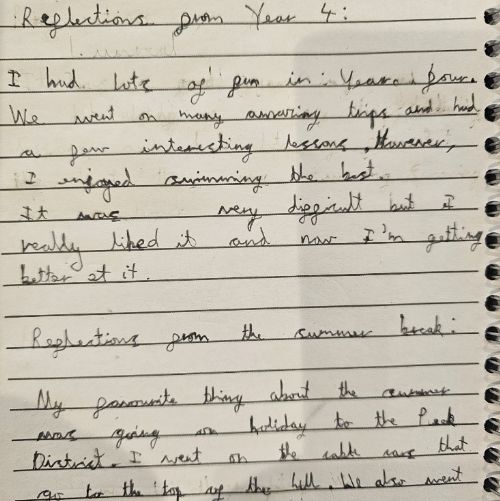 Reflections from Year 4:
I had lots of fun in Year four.
We went on many amazing trips and had
a few interesting lessons. However,
I enjoyed swimming the best.
It was very difficult but I
really liked it and now I'm getting
better at it.
Reflections from the summer break:
My favourite thing about the summer
was going on holiday to the Peak
District. I went on the cable cars that
go to the top of the hill. We also went